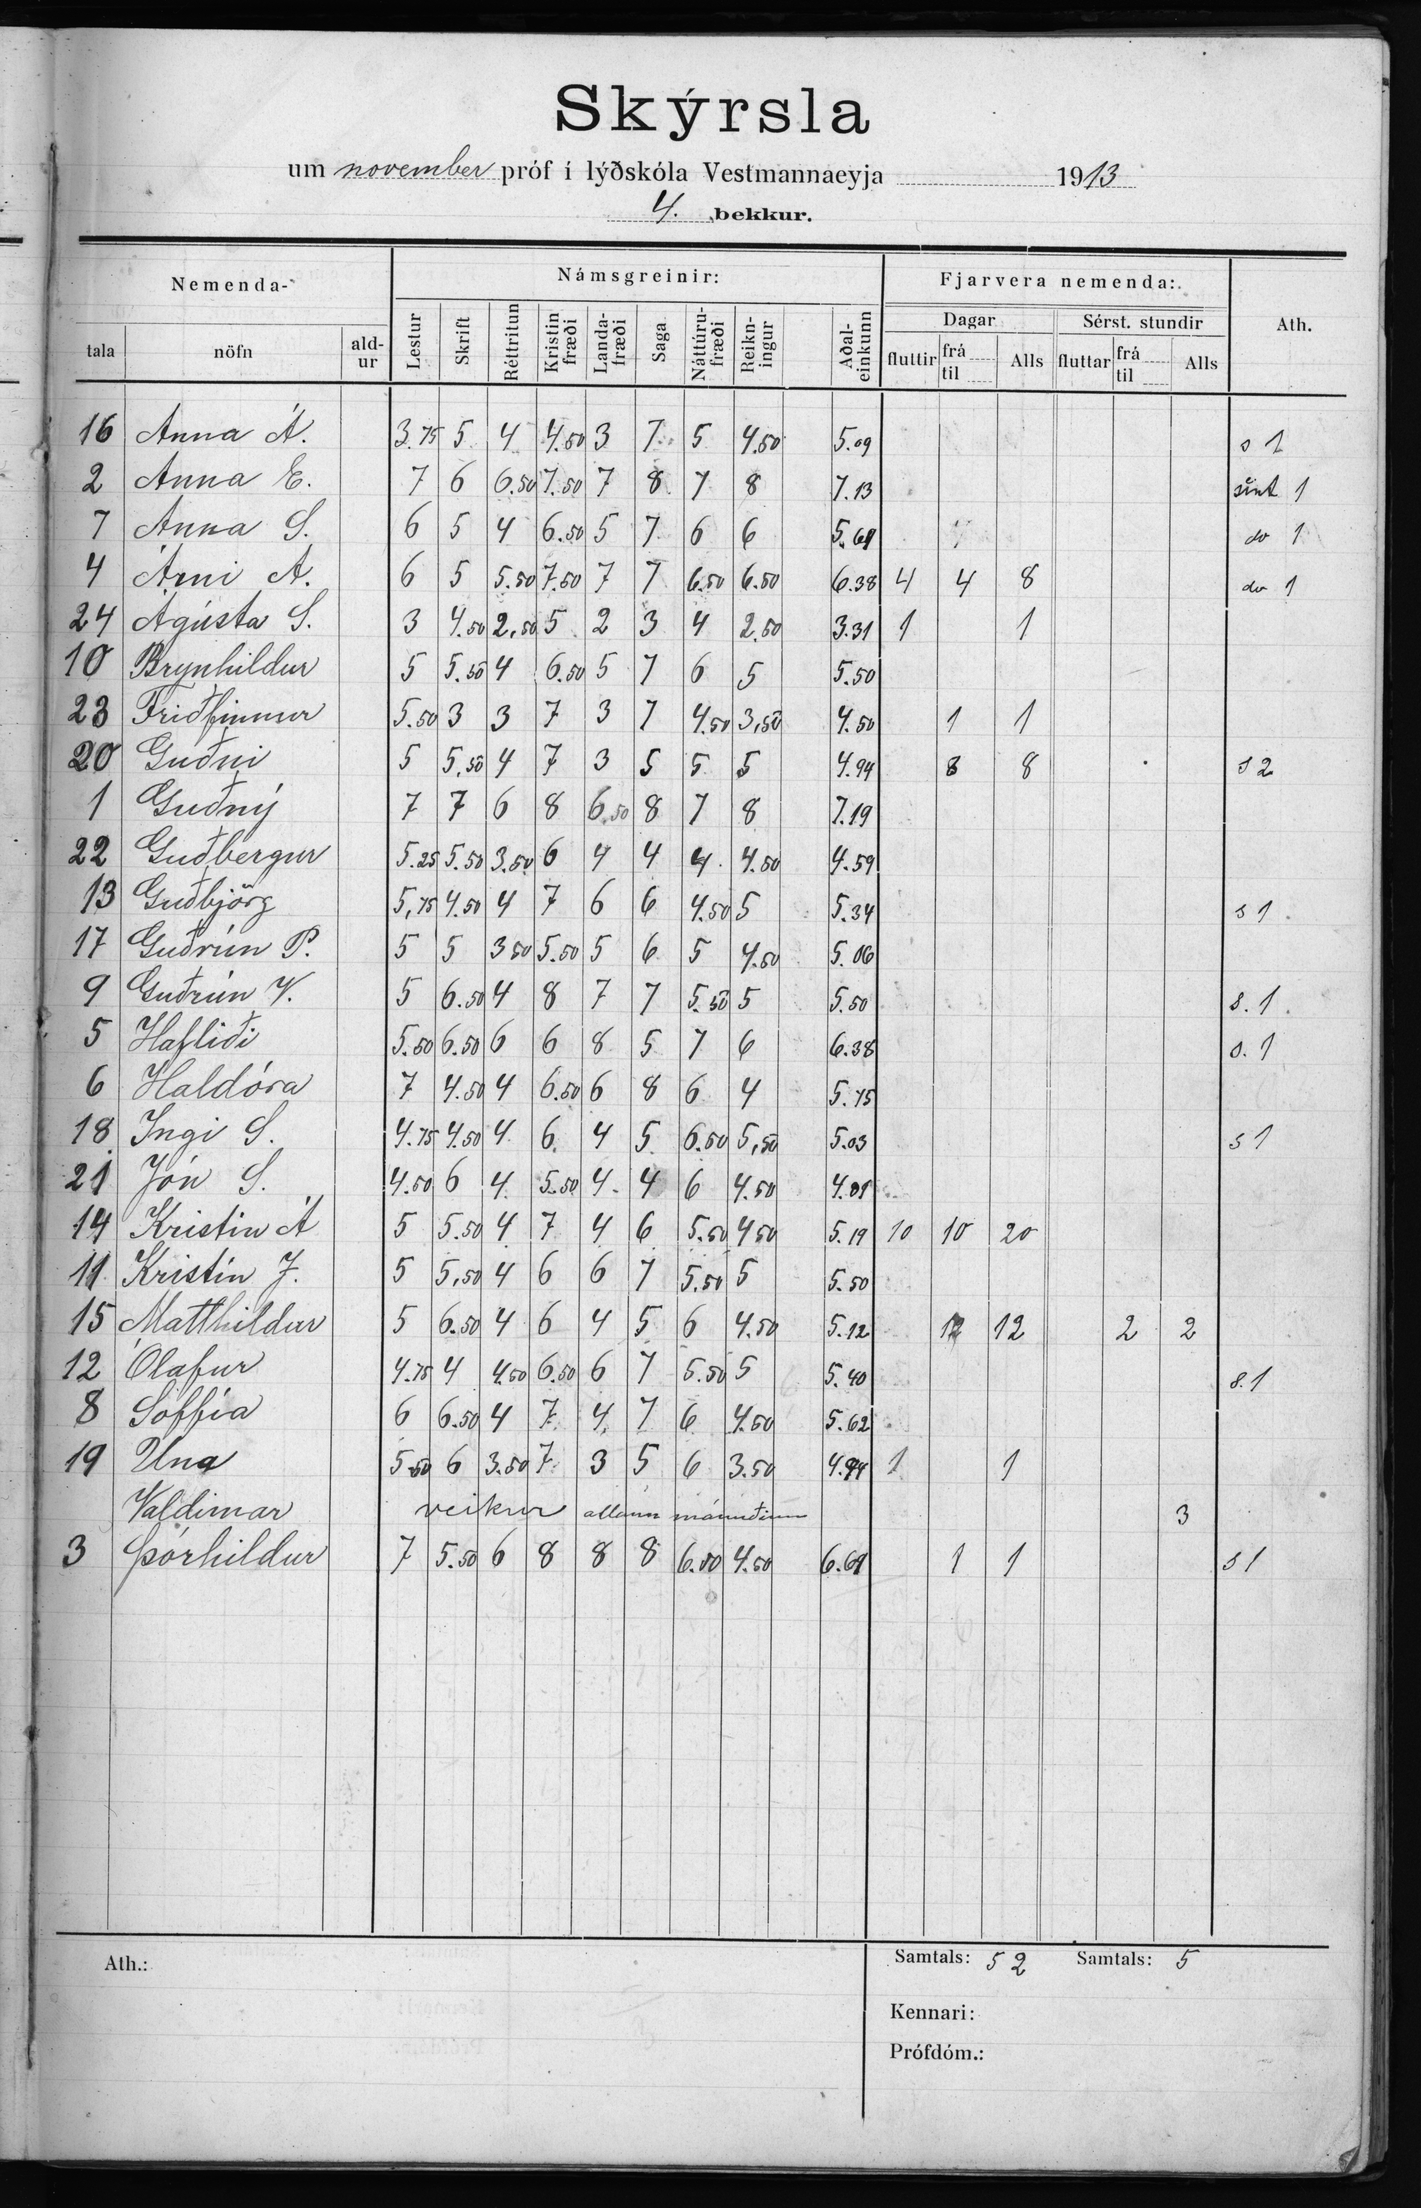 Skýrsla
um november próf í lýðskóla Vestmannaeyja 1913
4. bekkur.
Nemenda- Námsgreinir: Fjarvera nemenda: Ath.
Dagar Sérst. stundir
tala nöfn ald-ur Lestur Skrift Réttritun Kristinfræði Landa-fræði Saga Náttúru-fræði Reikn-ingur Aðal-einkunn fluttir frá til Alls fluttar frá til Alls
16 Anna Á. 3.75 5 4 4.50 3 7 5 4.50 5.09 s 1
2 Anna E. 7 6 6.50 7.50 7 8 7 8 7.13 seint 1
7 Anna S. 6 5 4 6.50 5 7 6 6 5.69 do 1
4 Árni Á. 6 5 5.50 7.50 7 7 6.50 6.50 6.38 4 4 8 do 1
24 Ágústa S. 3 4.50 2,50 5 2 3 4 2.50 3.31 1 1
10 Brynhildur 5 5.50 4 6.50 5 7 6 5 5.50
23 Friðfinnur 5.50 3 3 7 3 7 4.50 3,50 4.50 1 1
20 Guðni 5 5,50 4 7 3 5 5 5 4.94 8 8 s 2
1 Guðný 7 7 6 8 6.50 8 7 8 7.19
22 Guðbergur 5.25 5.50 3.50 6 4 4 4 4.50 4.59
13 Guðbjörg 5,75 4.50 4 7 6 6 4.50 5 5.34 s 1
17 Guðrún P. 5 5 3 50 5.50 5 6 5 4.50 5.06
9 Guðrún V. 5 6.50 4 8 7 7 5.50 5 5.50 s. 1
5 Hafliði 5.50 6.50 6 6 8 5 7 6 6.38 s. 1
6 Haldóra 7 4.50 4 6.50 6 8 6 4 5.75
18 Ingi S. 4.75 4.50 4 6 4 5 6.50 5,50 5.03 s 1
21 Jón S. 4.50 6 4 5.50 4 4 6 4.50
14 Kristín Á 5 5.50 4 7 4 6 5.50 4 50 5.19 10 10 20
11 Kristín J. 5 5,50 4 6 6 7 5.50 5 5.50
15 Matthildur 5 6.50 4 6 4 5 6 4.50 5.12 12 12 2 2
12 Ólafur 4.75 4 4.50 6.50 6 7 5.50 5 5.40 s. 1
8 Soffía 6 6.50 4 7 4 7 6 4.50 5.62
19 Una 5.50 6 3.50 7 3 5 6 3.50 4.94 1 1
Valdimar veikur allann mánuðinn 3
3 Þórhildur 7 5.50 6 8 8 8 6.50 4.50 6.69 1 1 s 1
Ath.: Samtals: 52 Samtals: 5
Kennari:
Prófdóm.: